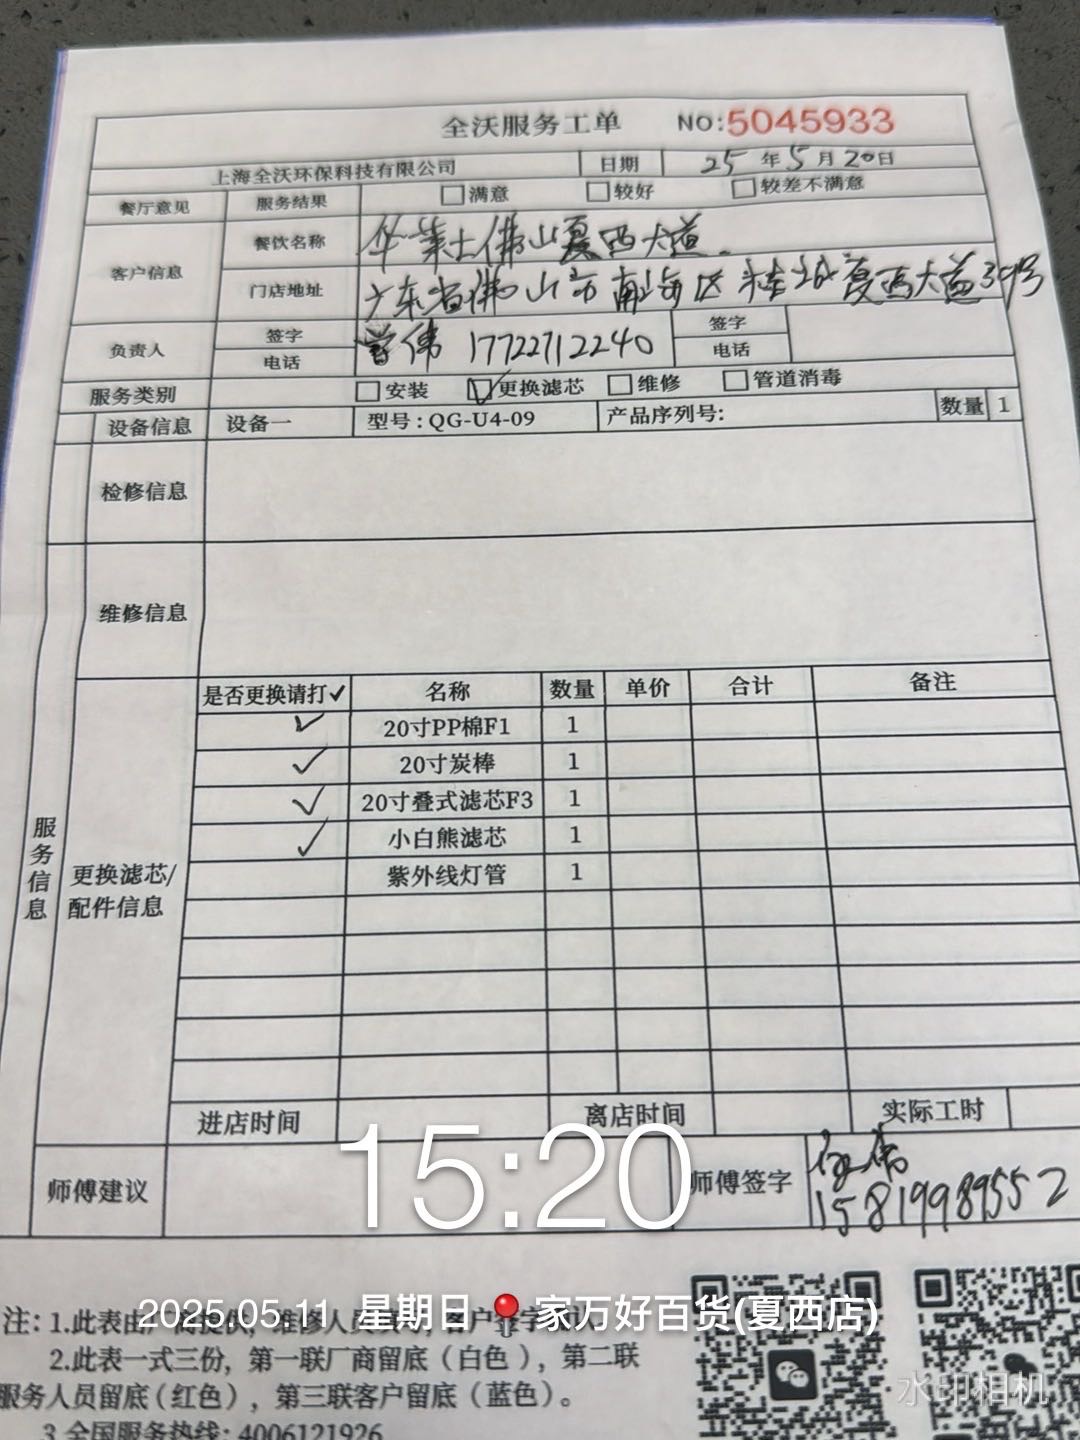 全沃服务工单 NO:5045933
上海全沃环保科技有限公司 日期 25年5月20日
餐厅意见 服务结果 满意 较好 较差不满意
客户信息 餐饮名称 华莱士佛山夏西大道
门店地址 广东省佛山市南海区桂城夏西大道39号
负责人 签字 曾伟 签字
电话 17722712240 电话
服务类别 安装 更换滤芯 维修 管道消毒
设备信息 设备一 型号:QG-U4-09 产品序列号: 数量 1
检修信息
维修信息
服务信息
更换滤芯/配件信息
是否更换请打✓ 名称 数量 单价 合计 备注
✓ 20寸PP棉F1 1
✓ 20寸炭棒 1
✓ 20寸叠式滤芯F3 1
✓ 小白熊滤芯 1
紫外线灯管 1
进店时间 离店时间 实际工时
15:20
师傅建议 师傅签字
15819989552
2025.05.11 星期日 家万好百货(夏西店)
注: 1.此表由厂商提供, 维修人员
2.此表一式三份, 第一联厂商留底(白色), 第二联
服务人员留底(红色), 第三联客户留底(蓝色)。
3.全国服务热线: 4006121926
水印相机